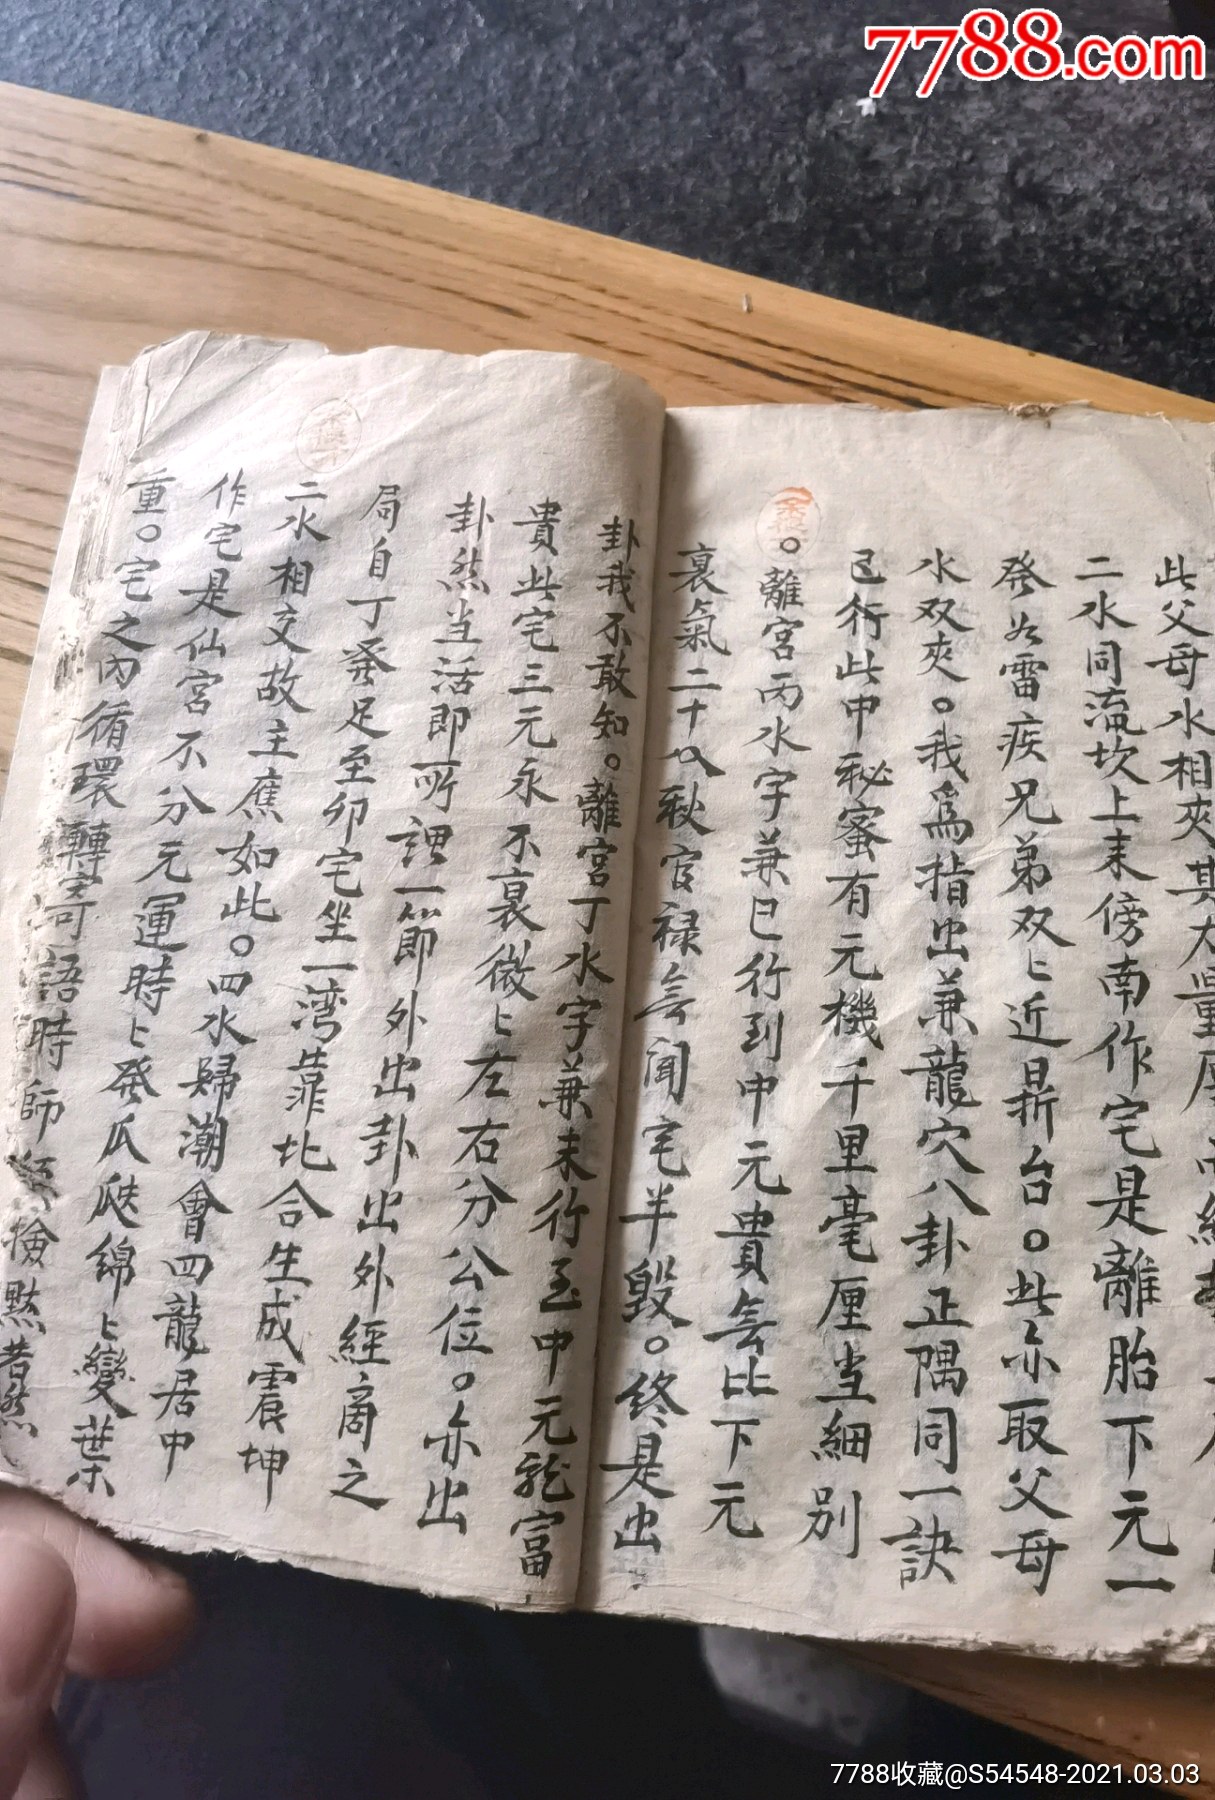 7788.com
此父母水相夾其力量厚
二水同流坎上来傍南作宅是離胎下元一
發如雷疾兄弟双〻近昜折台。此亦取父母
水双夾。我爲指出兼龍穴八卦正隅同一訣
已行此中秘蜜有元機千里毫厘当細别
。離宮丙水字兼巳行到中元貴無比下元
裏氣二十八秋官禄無聞宅半毁。终是出
卦我不敢知。離宮丁水字兼未行至中元龍富
貴此宅三元永不衰微〻左右分公位。亦出
卦然当活即所謂一節外出卦出外經商之
局自丁發足至卯宅坐一湾靠北合生成震坤
二水相交故主應如此。四水歸潮會四龍居中
作宅是仙宮不分元運時〻發瓜瓞綿〻變葉
重。宅之内循環轉寄語時師須檢點昔然
7788收藏@S54548-2021.03.03